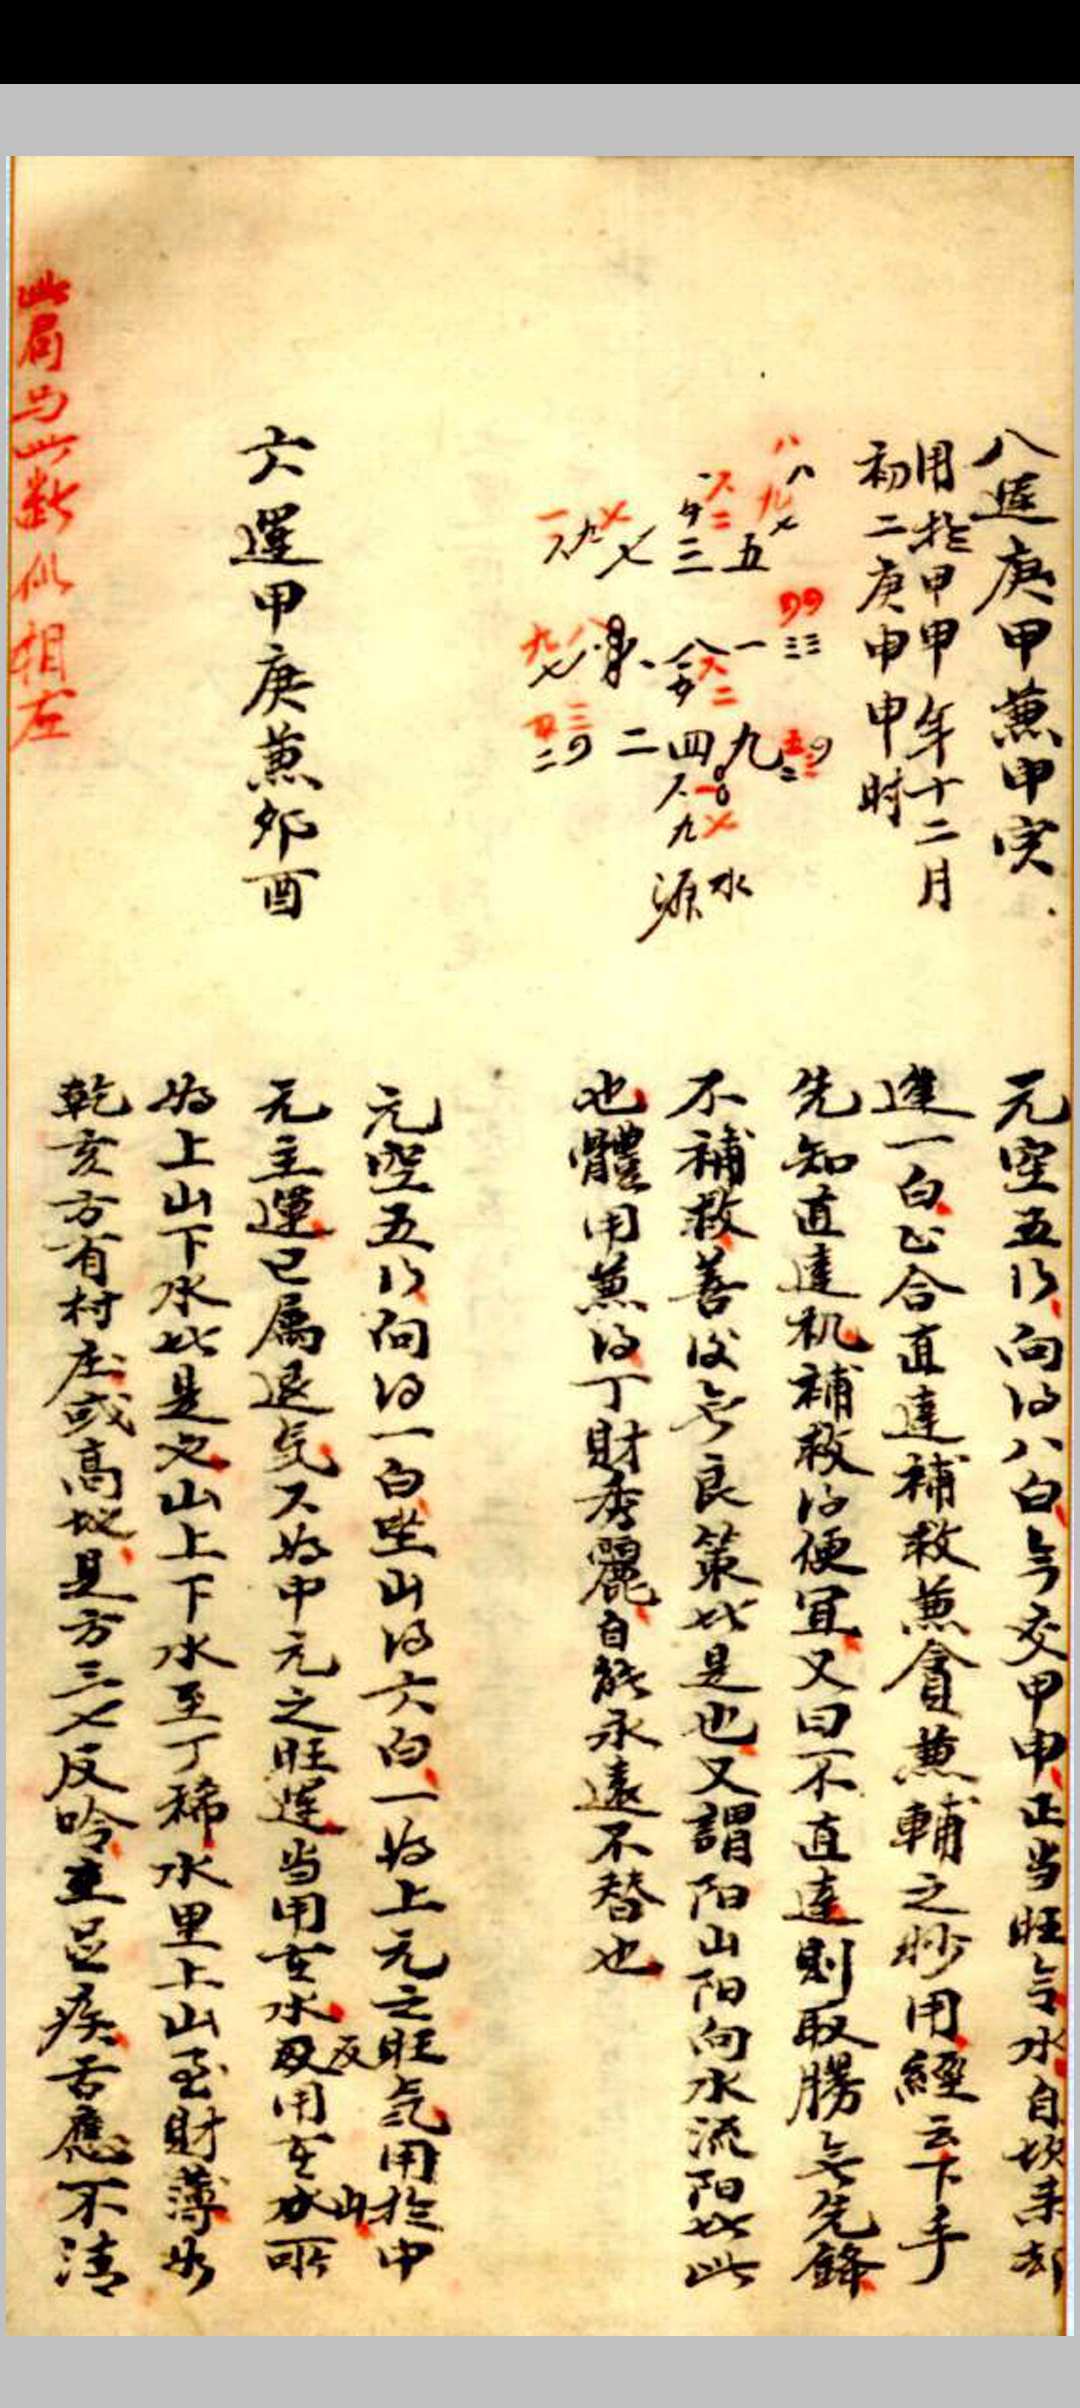 八运庚甲兼申寅
用於甲申年十二月
初二庚申申时
八
八
九七
五
三
七
九
一
四四
三三
一
八
九七
九
四
二
三四
二
六
九
一
七
水
源
元空五行向得八白今交甲申正当旺令水自坎来却
逢一白正合直達補救兼貪兼輔之妙用經云下手
先知直達机補救得便宜又曰不直達則取勝無先鋒
不補救善後無良策此是也又謂阳山阳向水流阳此此
也體用兼得丁財秀麗自能永遠不替也
六運甲庚兼卯酉
元空五行向得一白坐山得六白一为上元之旺氣用於中
元主運已属退气六为中元之旺運当用在水反用在山所
为上山下水此是也山上下水至丁稀水里上山至財薄如
乾亥方有村庄或高坟是方三七反吟主足疾舌應不清
此局与此断似相左